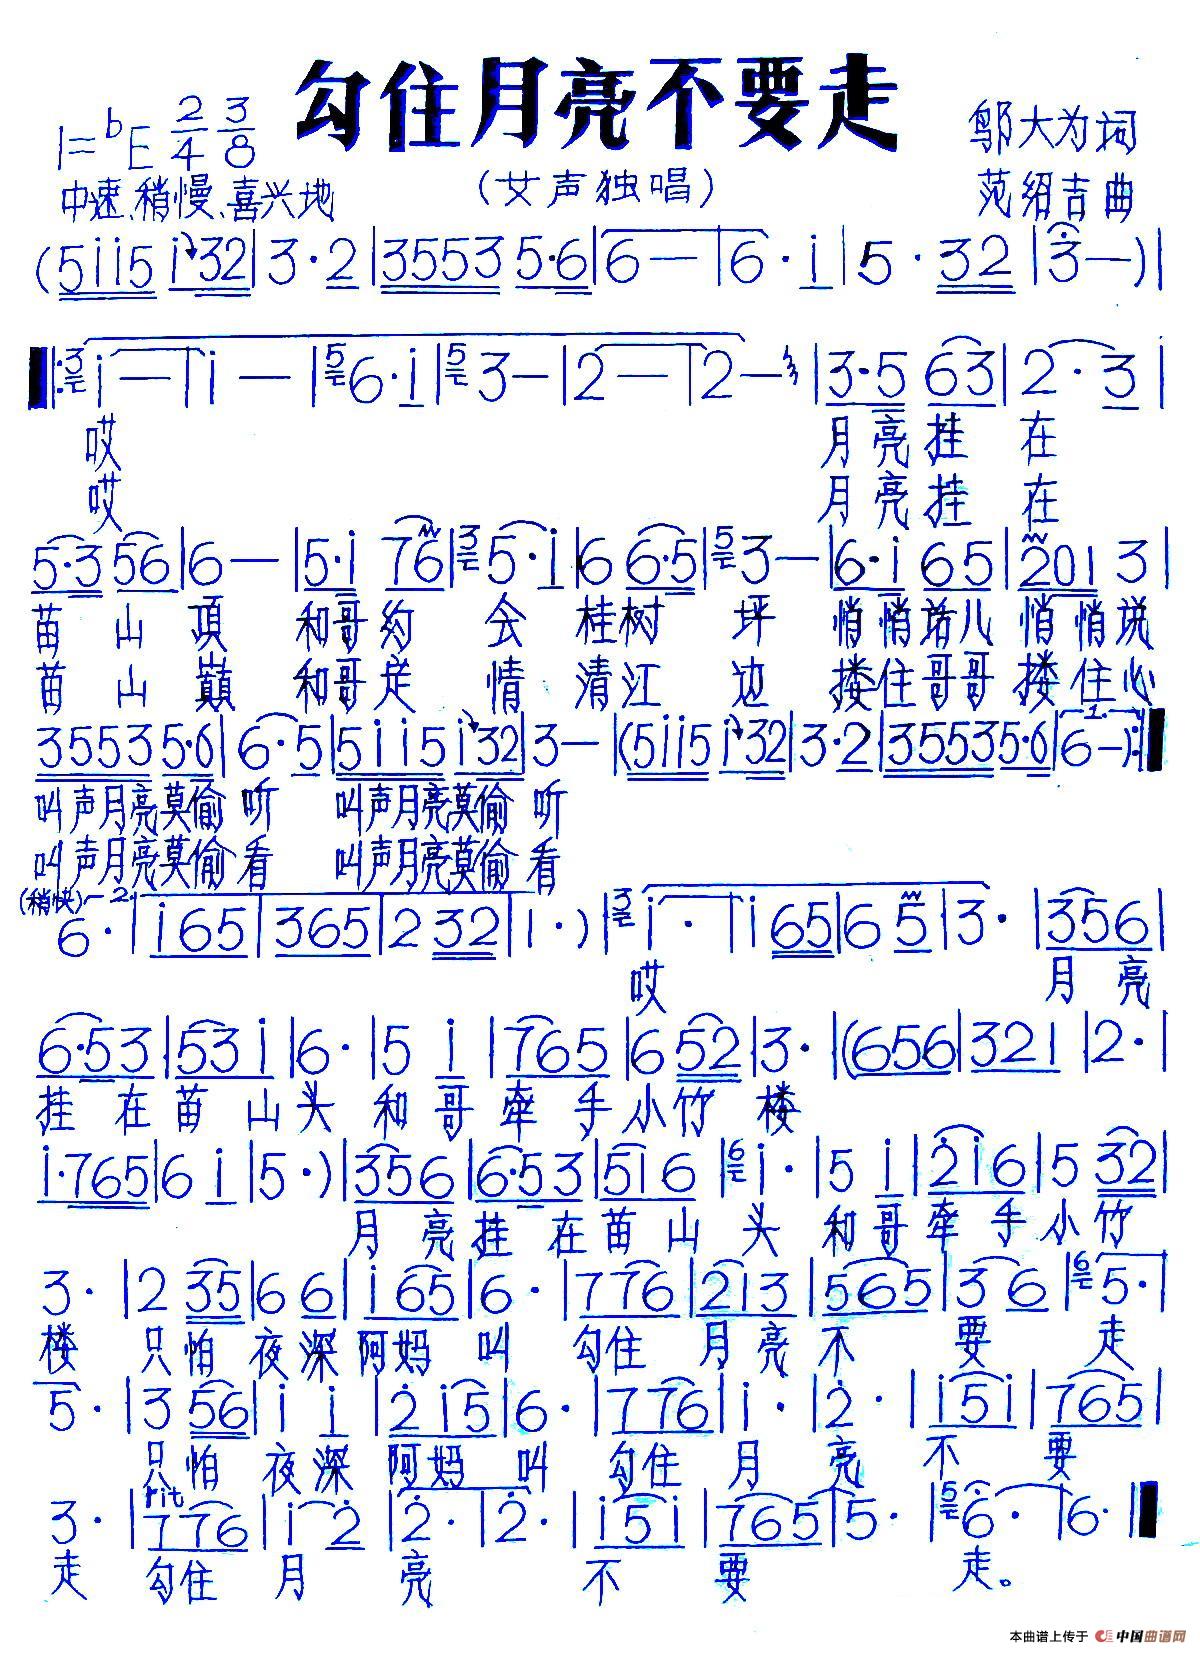 勾住月亮不要走
1=♭E 2/4 3/8
邬大为词
中速、稍慢、喜兴地
(女声独唱)
范绍吉曲
(5ii5 i32|3·2|3553 5·6|6—|6·i|5·32|3—)|
3 i—|i—|5 6·i|5 3—|2—|2—|3·5 63|2·3|
哎 月亮挂在
哎 月亮挂在
5·3 56|6—|5·i 76|3 5·i|6 6·5|5 3—|6·i 65|201 3|
苗山顶 和哥约会桂树坪 悄悄话儿悄悄说
苗山巅 和哥定情清江边 搂住哥哥搂住心
3553 5·6|6·5|5ii5 i32|3—|(5ii5 i32|3·2|3553 5·6|1. 6—):|
叫声月亮莫偷听 叫声月亮莫偷听
叫声月亮莫偷看 叫声月亮莫偷看
(稍快) 2. 6·|i65|365|2 32|1·)|3 i·|i65|6 5|3·|356|
哎 月亮
6·53|53i|6·|5 i|765|6 52|3·|(656|321|2·|
挂在苗山头 和哥牵手小竹楼
i·765|6 i|5·)|356|6·53|5i6|6 i·|5 i|2i6|5 32|
月亮挂在苗山头 和哥牵手小竹
3·|2 35|6 6|i65|6·|776|2i3|565|3 6|6 5·|
楼 只怕夜深阿妈叫 勾住月亮不要走
5·|3 56|i i|2i5|6·|776|i·|2·|i5i|765|
只怕夜深阿妈叫 勾住月亮不要
rit
3·|776|i 2|2·|2·|i5i|765|5·|5 6·|6·‖
走 勾住月亮不要走。
本曲谱上传于 中国曲谱网